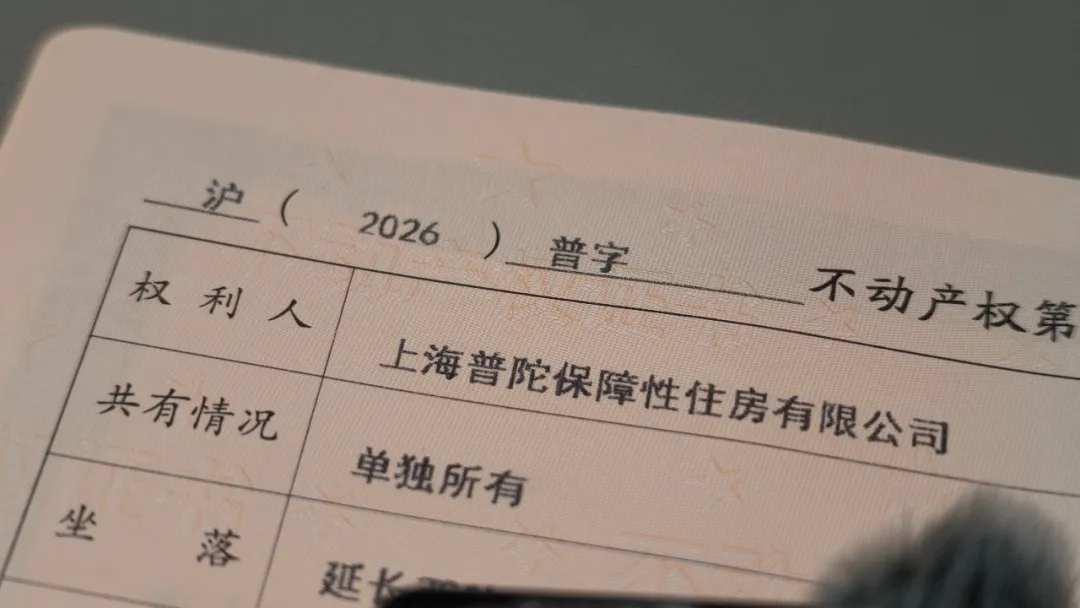 沪（ 2026 ）普字 不动产权第
权利人 上海普陀保障性住房有限公司
共有情况 单独所有
坐落 延长